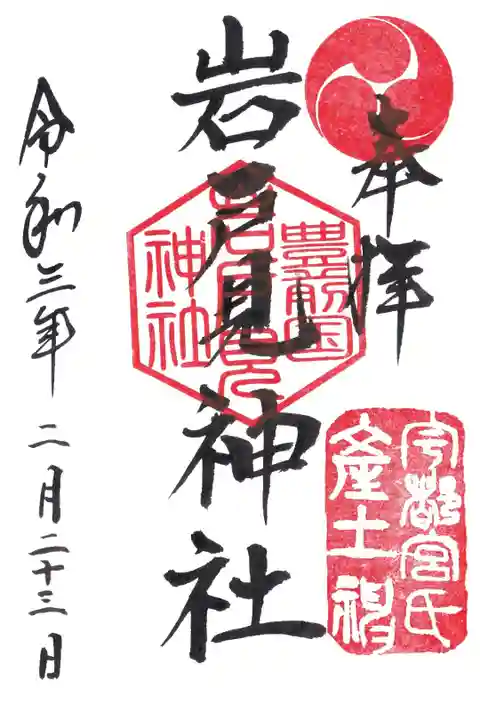 奉拝
岩戸見神社
豊前国
岩戸見
神社
宇都宮氏
産土神
令和三年二月二十三日